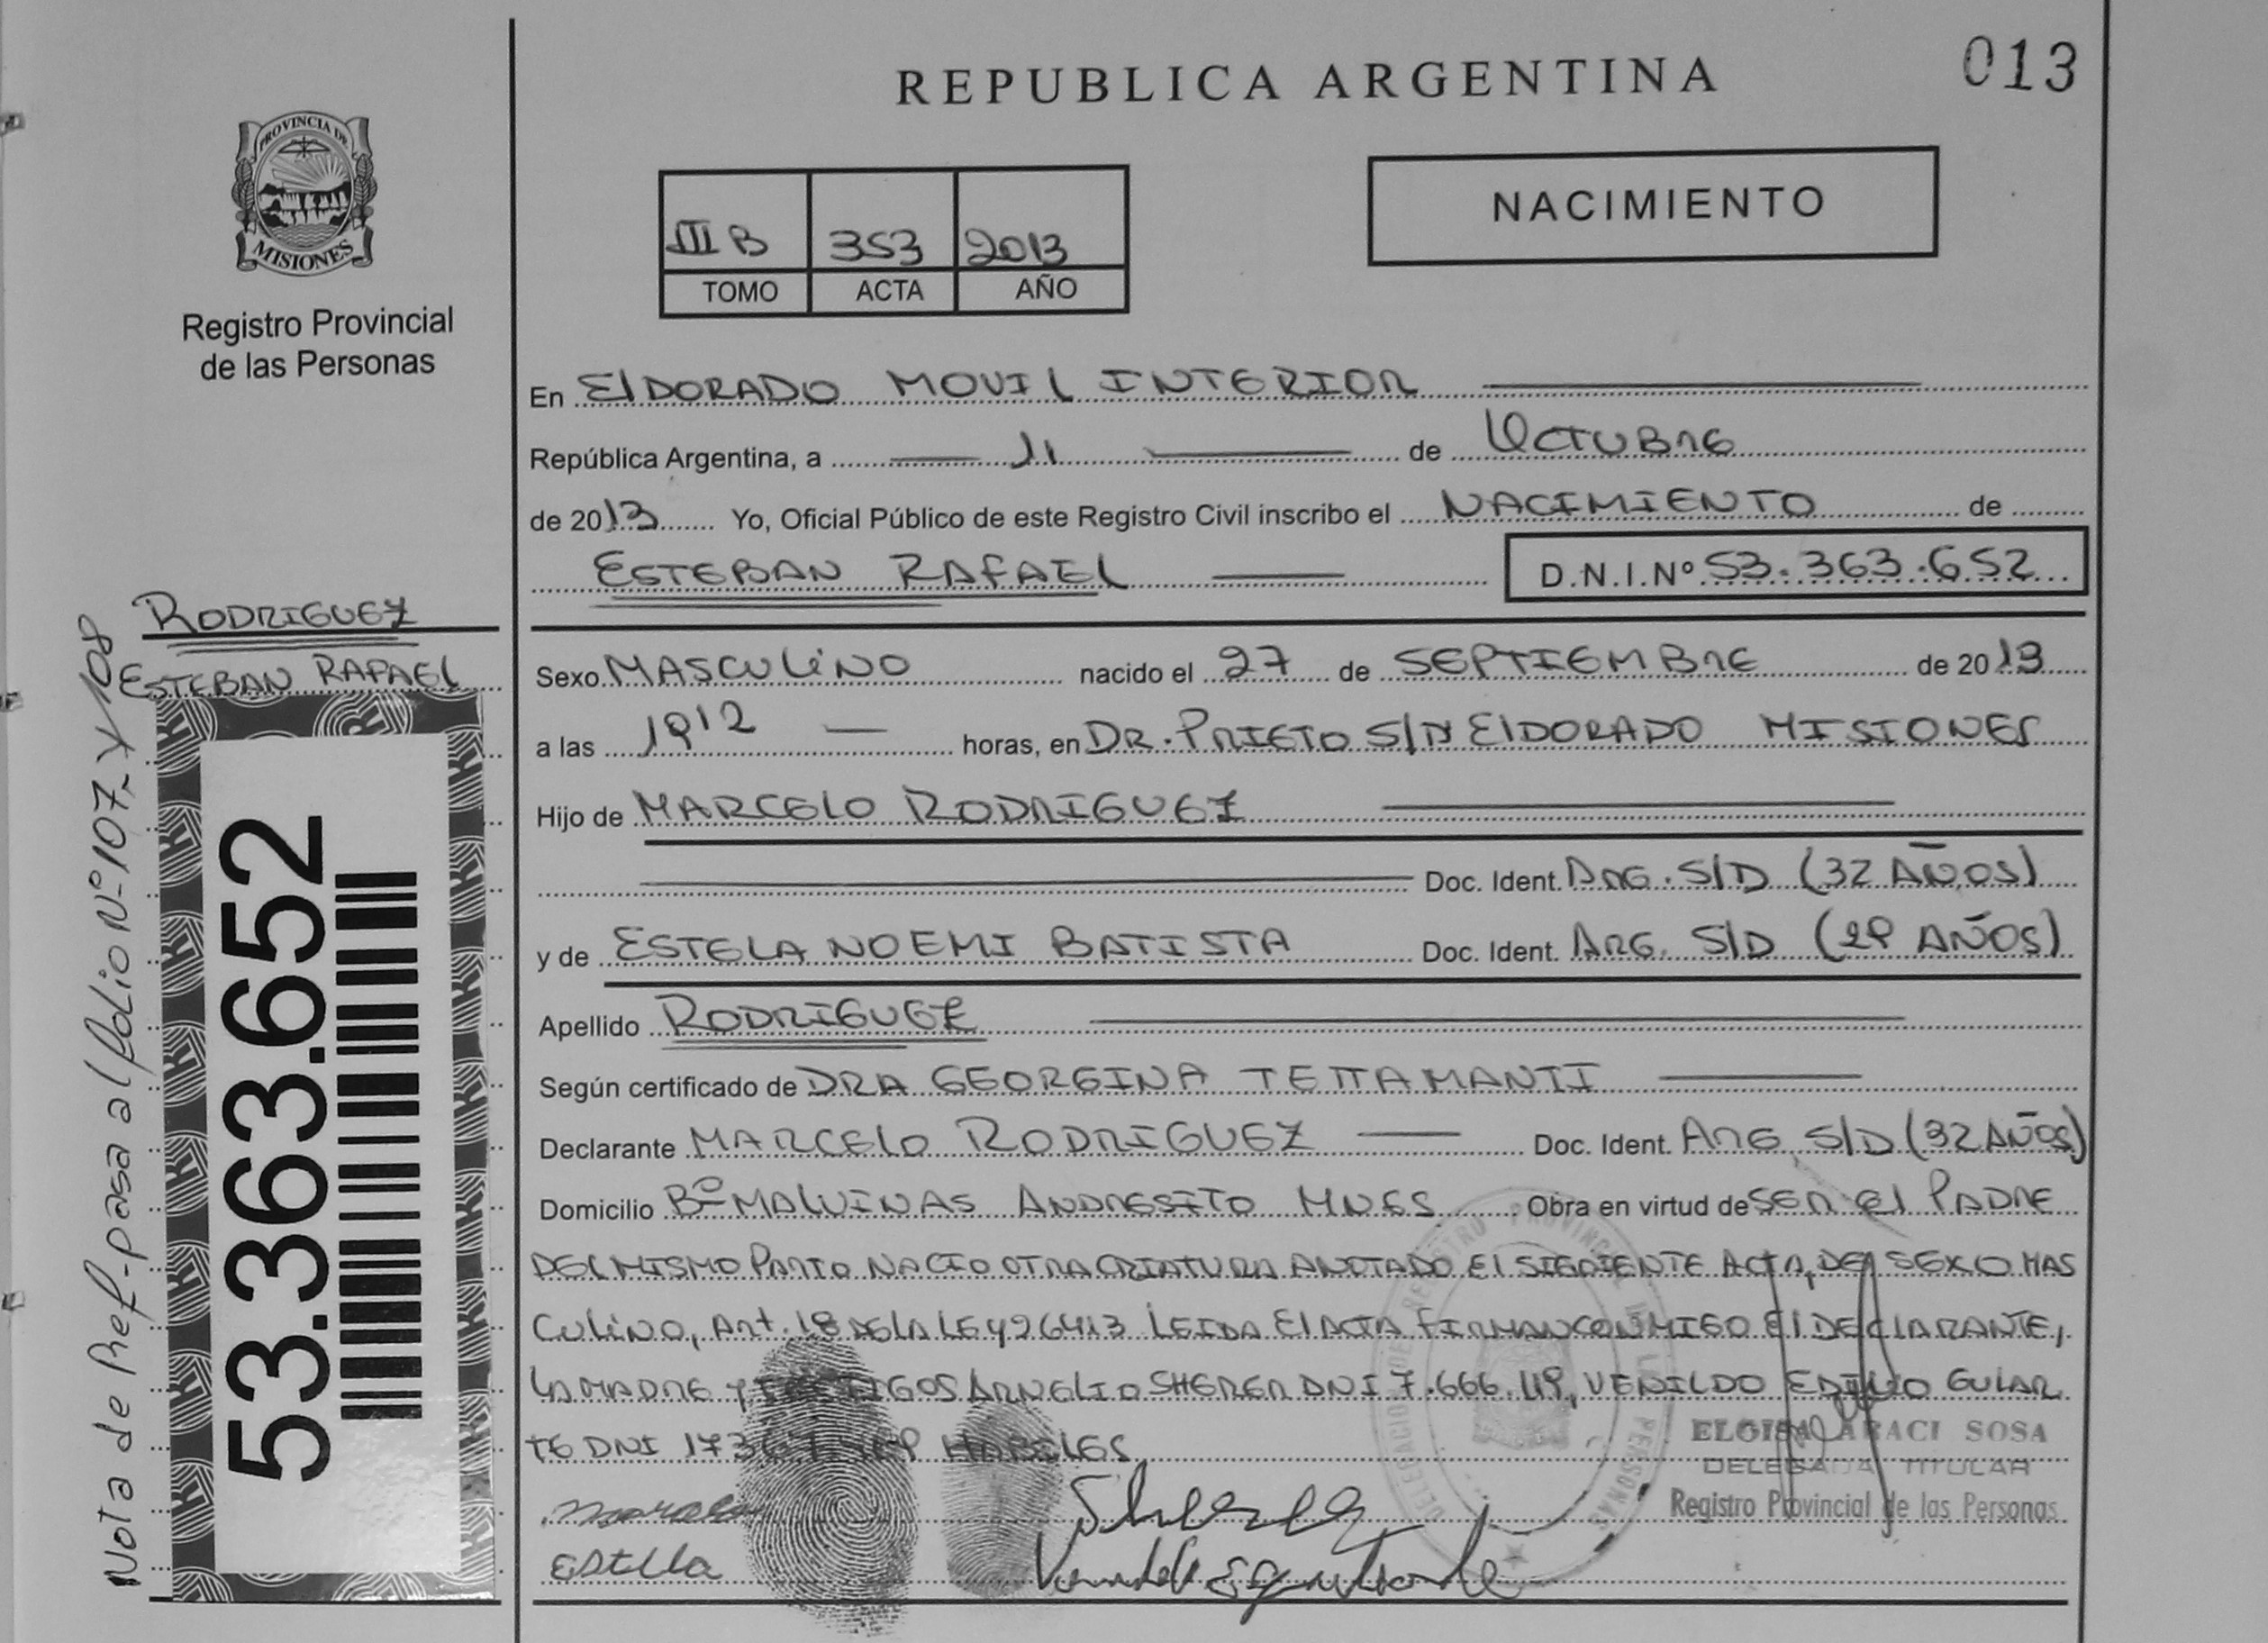 REPUBLICA ARGENTINA
013
PROVINCIA DE
MISIONES
Registro Provincial
de las Personas
III B 353 2013
TOMO ACTA AÑO
NACIMIENTO
En ElDORADO MOVIL INTERIOR
República Argentina, a 11 de OCTUBRE
de 2013 Yo, Oficial Público de este Registro Civil inscribo el NACIMIENTO de
ESTEBAN RAFAEL D.N.I.Nº 53.363.652
RODRIGUEZ
ESTEBAN RAFAEL
53.363.652
Nota de Ref-pasa al folio Nº 107 y 108
Sexo MASCULINO nacido el 27 de SEPTIEMBRE de 2013
a las 1912 horas, en DR. PRIETO S/N ElDORADO MISIONES
Hijo de MARCELO RODRIGUEZ
Doc. Ident. ARG. S/D (32 AÑOS)
y de ESTELA NOEMI BATISTA Doc. Ident. ARG. S/D (29 AÑOS)
Apellido RODRIGUEZ
Según certificado de DRA GEORGINA TETTAMANTI
Declarante MARCELO RODRIGUEZ Doc. Ident. ARG S/D (32 AÑOS)
Domicilio Bº MALVINAS ANDRESITO MNES Obra en virtud de SER El PADRE
DEL MISMO PARTO NACIO OTRA CRIATURA ANOTADO El SIGUIENTE ACTA, DE SEXO MAS
CULINO, Art. 18 DE LA LEY 26413 LEIDA El ACTA FIRMAN CONMIGO El DECLARANTE,
LA MADRE Y TESTIGOS ARNELIO SHERER DNI 7.666.119, VENILDO EDILIO GULAR
TE DNI HABILES
Estella
DELEGACION REGISTRO PROVINCIAL DE LAS PERSONAS
ELOISA ARACI SOSA
DELEGADA TITULAR
Registro Provincial de las Personas